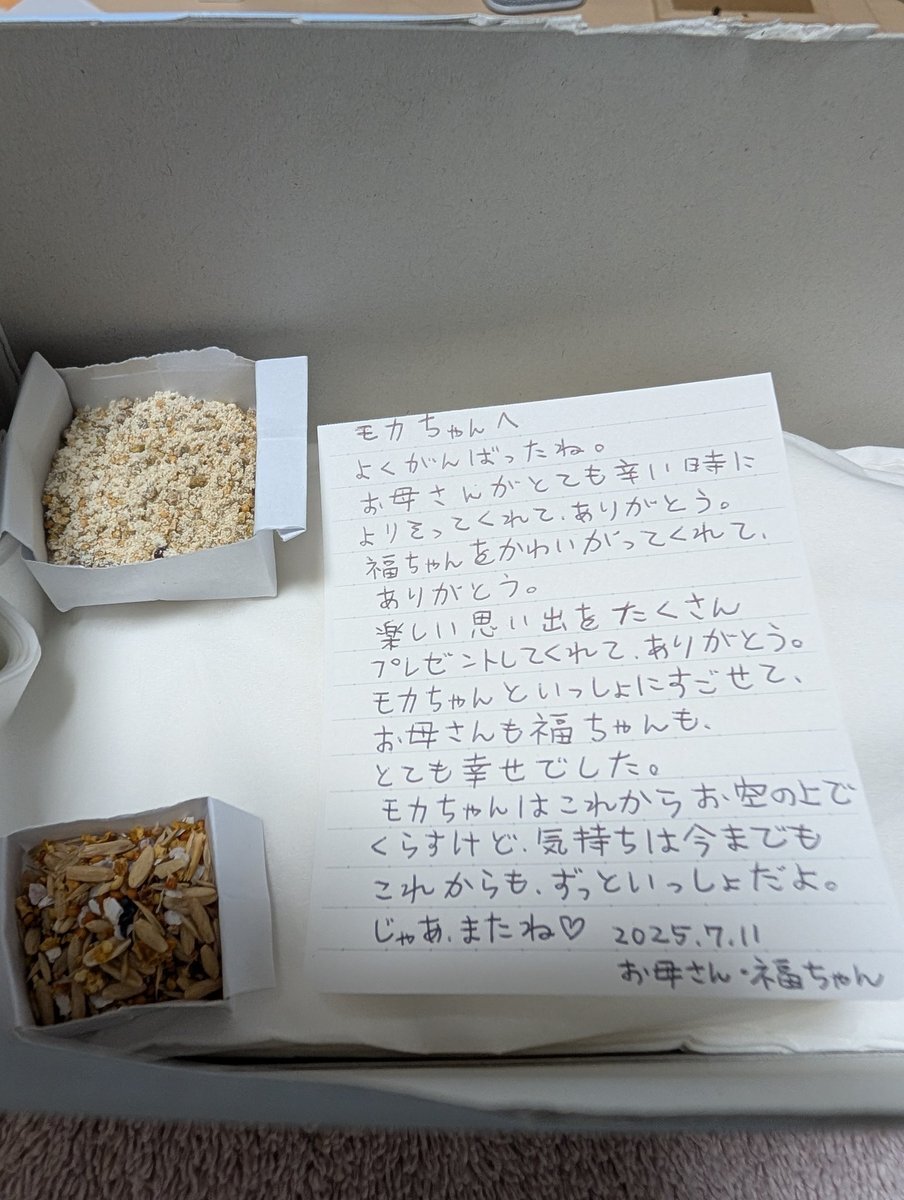 モカちゃんへ
よくがんばったね。
お母さんがとても辛い時に
よりそってくれて、ありがとう。
福ちゃんをかわいがってくれて、
ありがとう。
楽しい思い出をたくさん
プレゼントしてくれて、ありがとう。
モカちゃんといっしょにすごせて、
お母さんも福ちゃんも、
とても幸せでした。
モカちゃんはこれからお空の上で
くらすけど、気持ちは今までも
これからも、ずっといっしょだよ。
じゃあ、またね♡ 2025.7.11
お母さん・福ちゃん